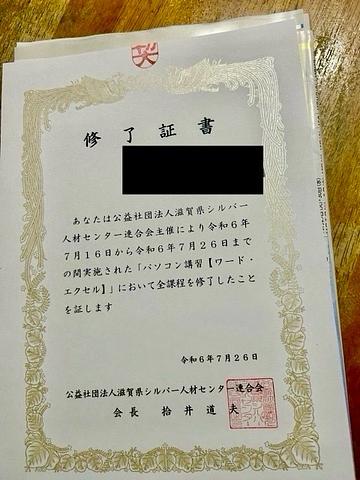 修了証書
あなたは公益社団法人滋賀県シルバー
人材センター連合会主催により令和6年
7月16日から令和6年7月26日まで
の間実施された「パソコン講習【ワード・
エクセル】」において全課程を修了したこと
を証します
令和6年7月26日
公益社団法人滋賀県シルバー人材センター連合会
会長 拾井道夫